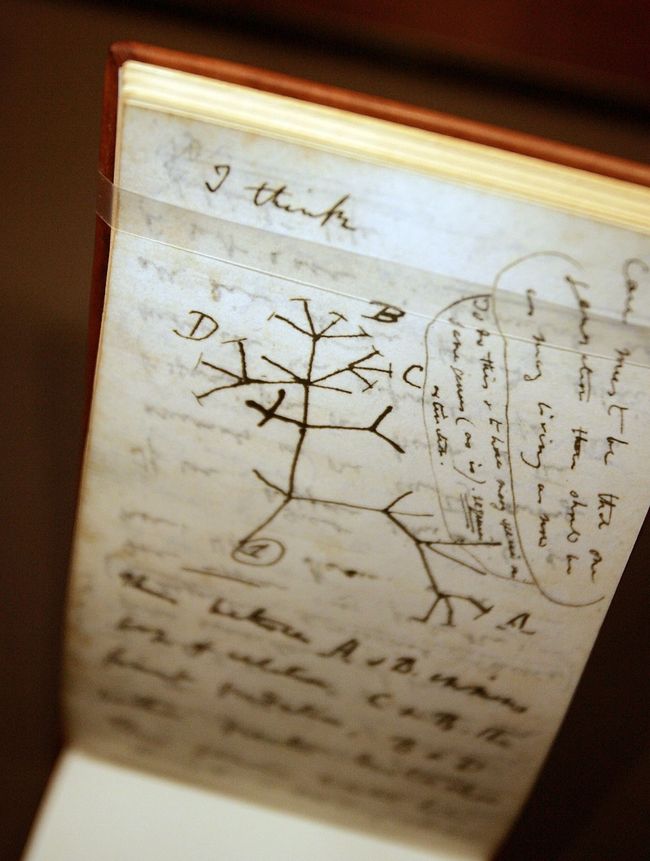 I think
Case must be that one
generation then should be
as many living as now
To do this & to have many species in
same genus (as is). requires
extinction.
B
D
C
1
A
Thus between A & B. immense
gap of relation. C & B. the
finest gradation, B & D
rather greater distinction